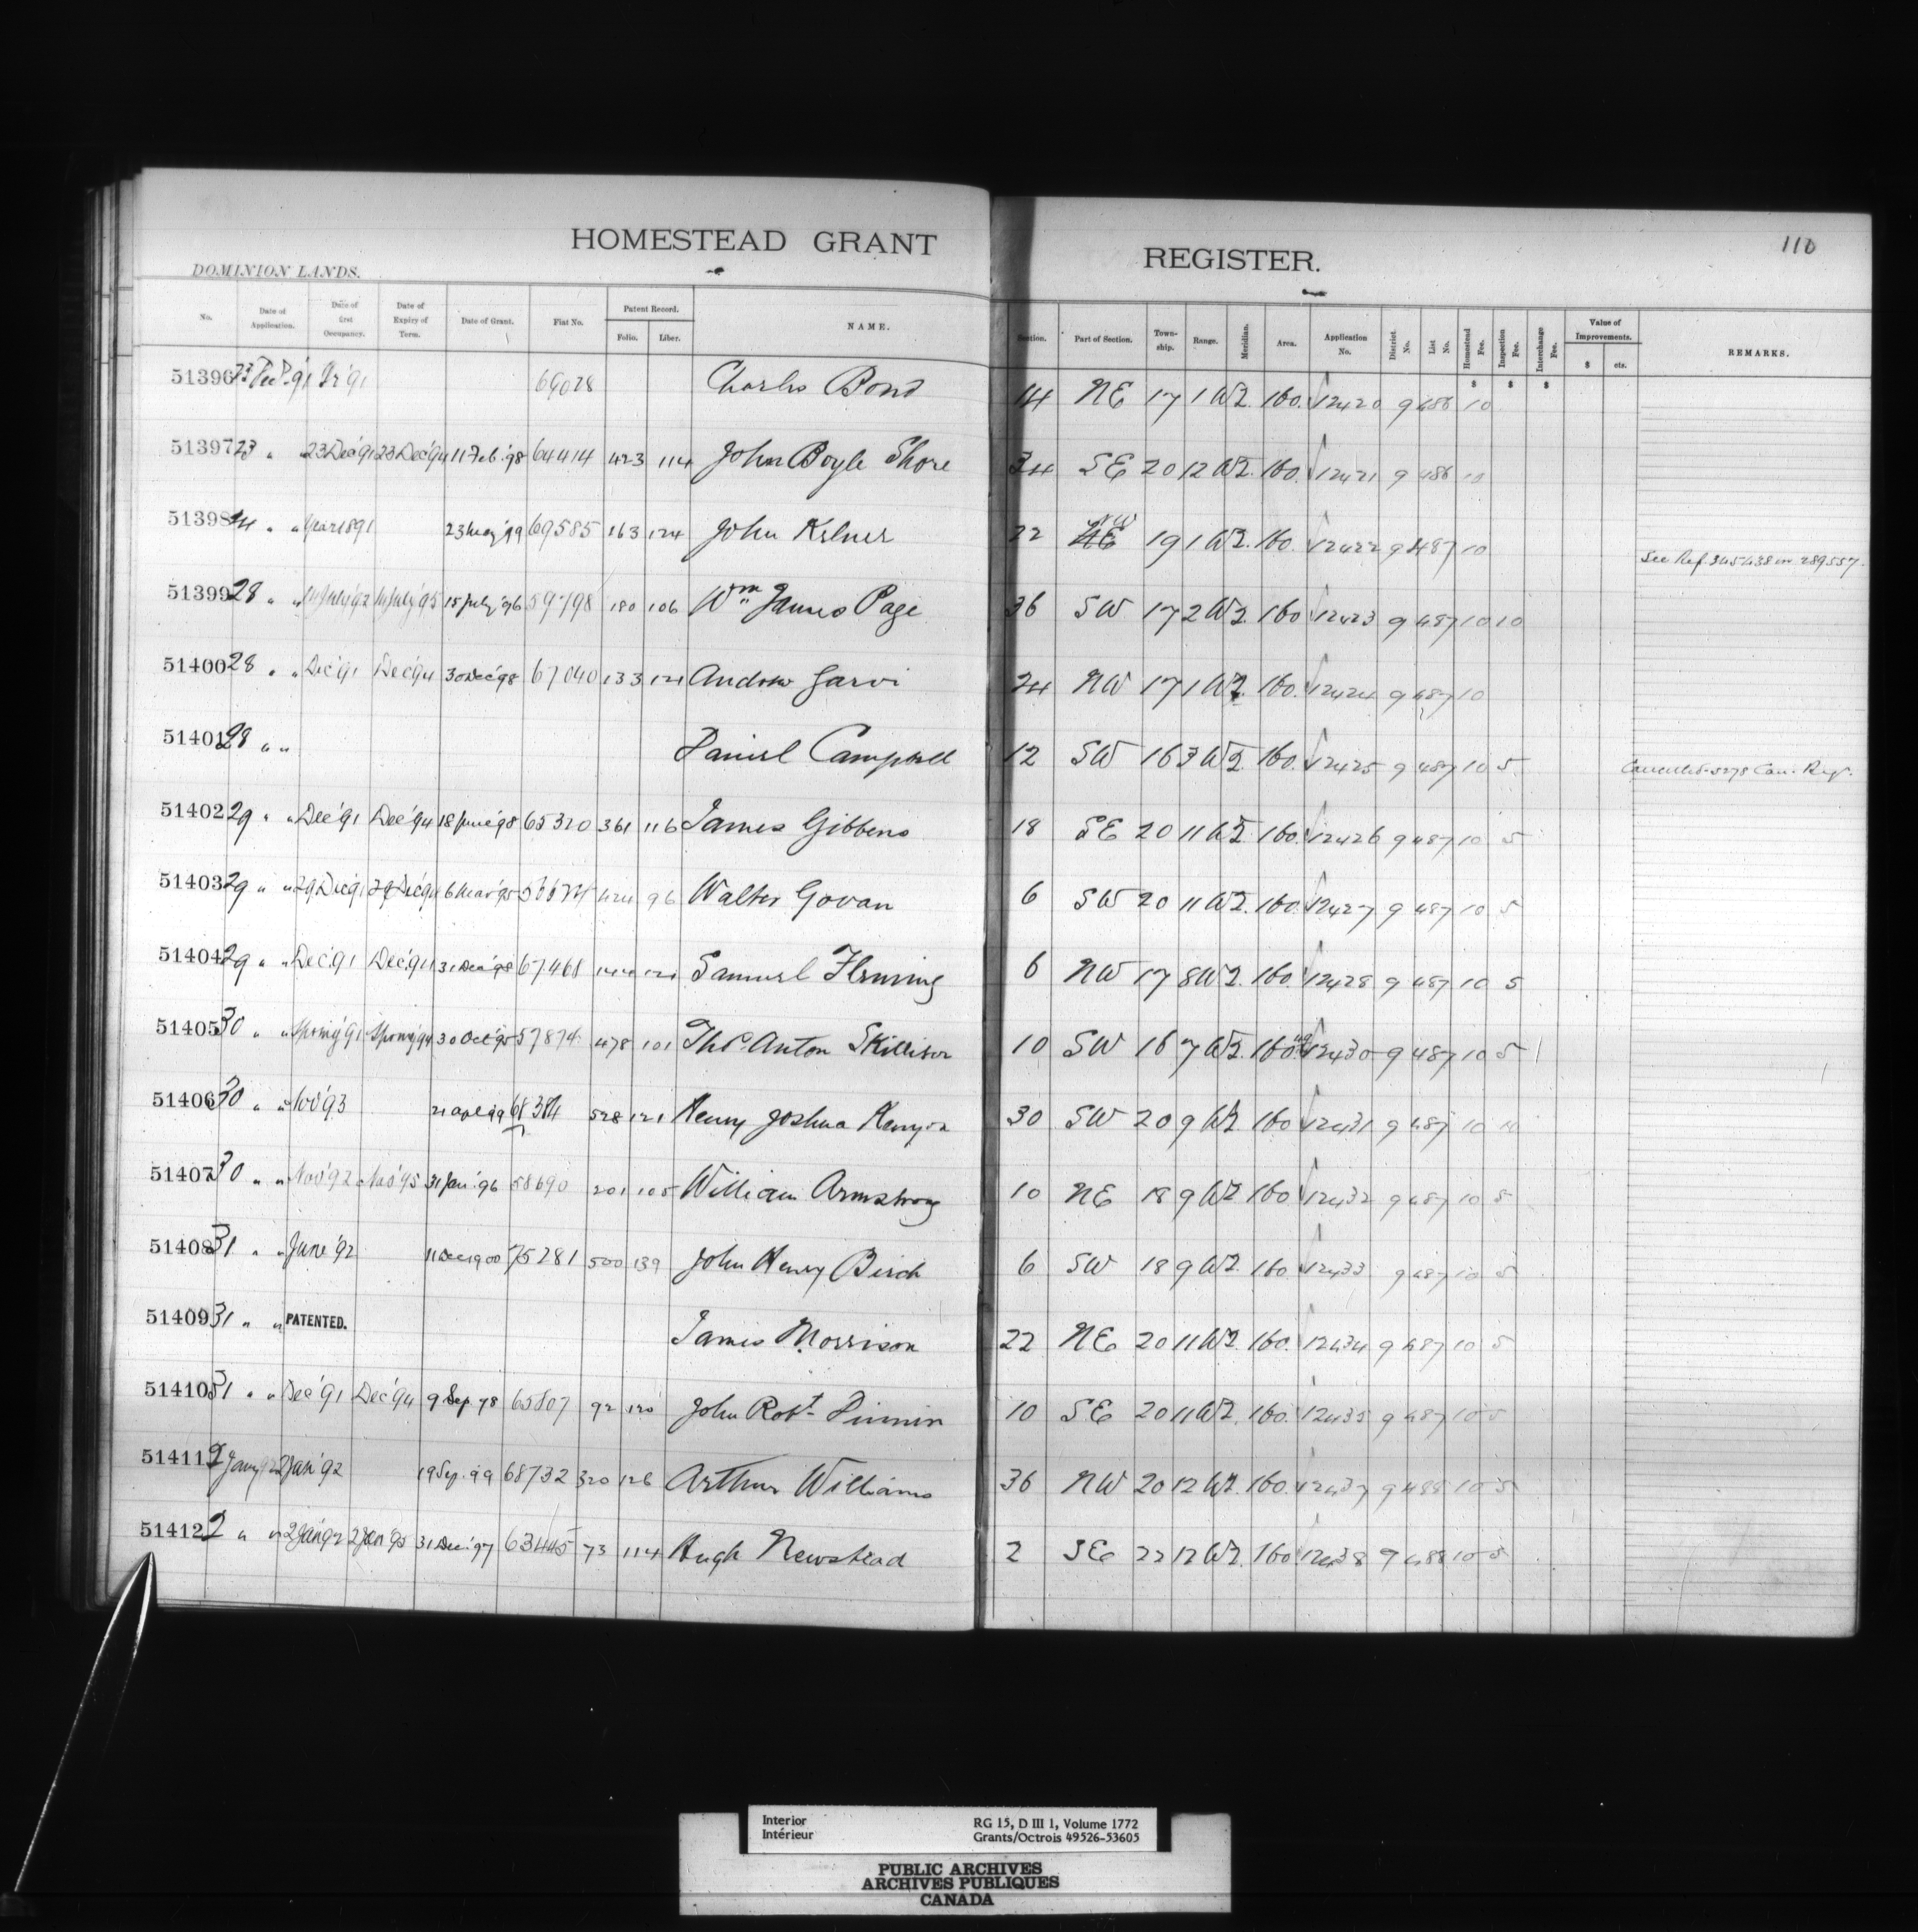 HOMESTEAD GRANT REGISTER.
110
DOMINION LANDS.
No. Date of Application. Date of first Occupancy. Date of Expiry of Term. Date of Grant. Fiat No. Patent Record. Folio. Liber. NAME. Section. Part of Section. Township. Range. Meridian. Area. Application No. District No. List No. Homestead Fee. Inspection Fee. Interchange Fee. Value of Improvements. $ cts. REMARKS.
$ $ $
51396 23 '91 Yr '91 69028 Charles Bond 14 NE 17 1 W2. 160. 12420 9 486 10
51397 23 " " 23 Dec '91 23 Dec '94 11 Feb. '98 64414 423 114 John Boyle Shore 34 SE 20 12 W2. 160. 12421 9 486 10
51398 24 " " Year 1891 23 May '99 69585 163 124 John Kelner 22 NW 19 1 W2. 160. 12422 9 487 10 See Ref. 345438 on 289557.
51399 28 " " July '92 July '95 15 July '96 59798 180 106 Wm James Page 36 SW 17 2 W2. 160 12423 9 487 10 10
51400 28 " " Dec '91 Dec '94 30 Dec '98 67040 133 121 Andrew Jarvi 24 NW 17 1 W2. 160. 12424 9 487 10
51401 28 " " Daniel Campbell 12 SW 16 3 W2. 160. 12425 9 487 10 5 Cancelled 5278 Can. Reg.
51402 29 " " Dec '91 Dec '94 18 June '98 65320 361 116 James Gibbens 18 SE 20 11 W2. 160. 12426 9 487 10 5
51403 29 " " 29 Dec '91 29 Dec '94 6 Mar '95 424 96 Walter Govan 6 SW 20 11 W2. 160. 12427 9 487 10 5
51404 29 " " Dec '91 Dec '94 31 Dec '98 67468 121 Samuel Fleming 6 NW 17 8 W2. 160. 12428 9 487 10 5
51405 30 " " Spring '91 Spring '94 30 Oct '95 57874 478 101 Thos. Anton Skillison 10 SW 16 7 W2. 160 12430 9 487 10 5
51406 30 " " Nov '93 21 Apl '99 68384 528 121 Henry Joshua Kenyon 30 SW 20 9 W2. 160 12431 9 487 10 10
51407 30 " " Nov '92 Nov '95 31 Jan. '96 58690 201 105 William Armstrong 10 NE 18 9 W2 160 12432 9 487 10 5
51408 31 " " June '92 11 Dec 1900 75281 500 139 John Henry Birch 6 SW 18 9 W2. 160 12433 9 487 10 5
51409 31 " " PATENTED. James Morrison 22 NE 20 11 W2. 160. 12434 9 487 10 5
51410 31 " " Dec '91 Dec '94 9 Sep 98 65807 92 120 John Robt. Pinnin 10 SE 20 11 W2. 160. 12435 9 487 10 5
51411 2 Jany '92 2 Jan '92 19 Sep. '99 68732 320 126 Arthur Williams 36 NW 20 12 W2. 160. 12437 9 488 10 5
51412 2 " " 2 Jan '92 2 Jan '95 31 Dec. '97 63445 73 114 Hugh Newstead 2 SE 22 12 W2. 160 12438 9 488 10 5
Interior
Intérieur
RG 15, D III 1, Volume 1772
Grants/Octrois 49526-53605
PUBLIC ARCHIVES
ARCHIVES PUBLIQUES
CANADA